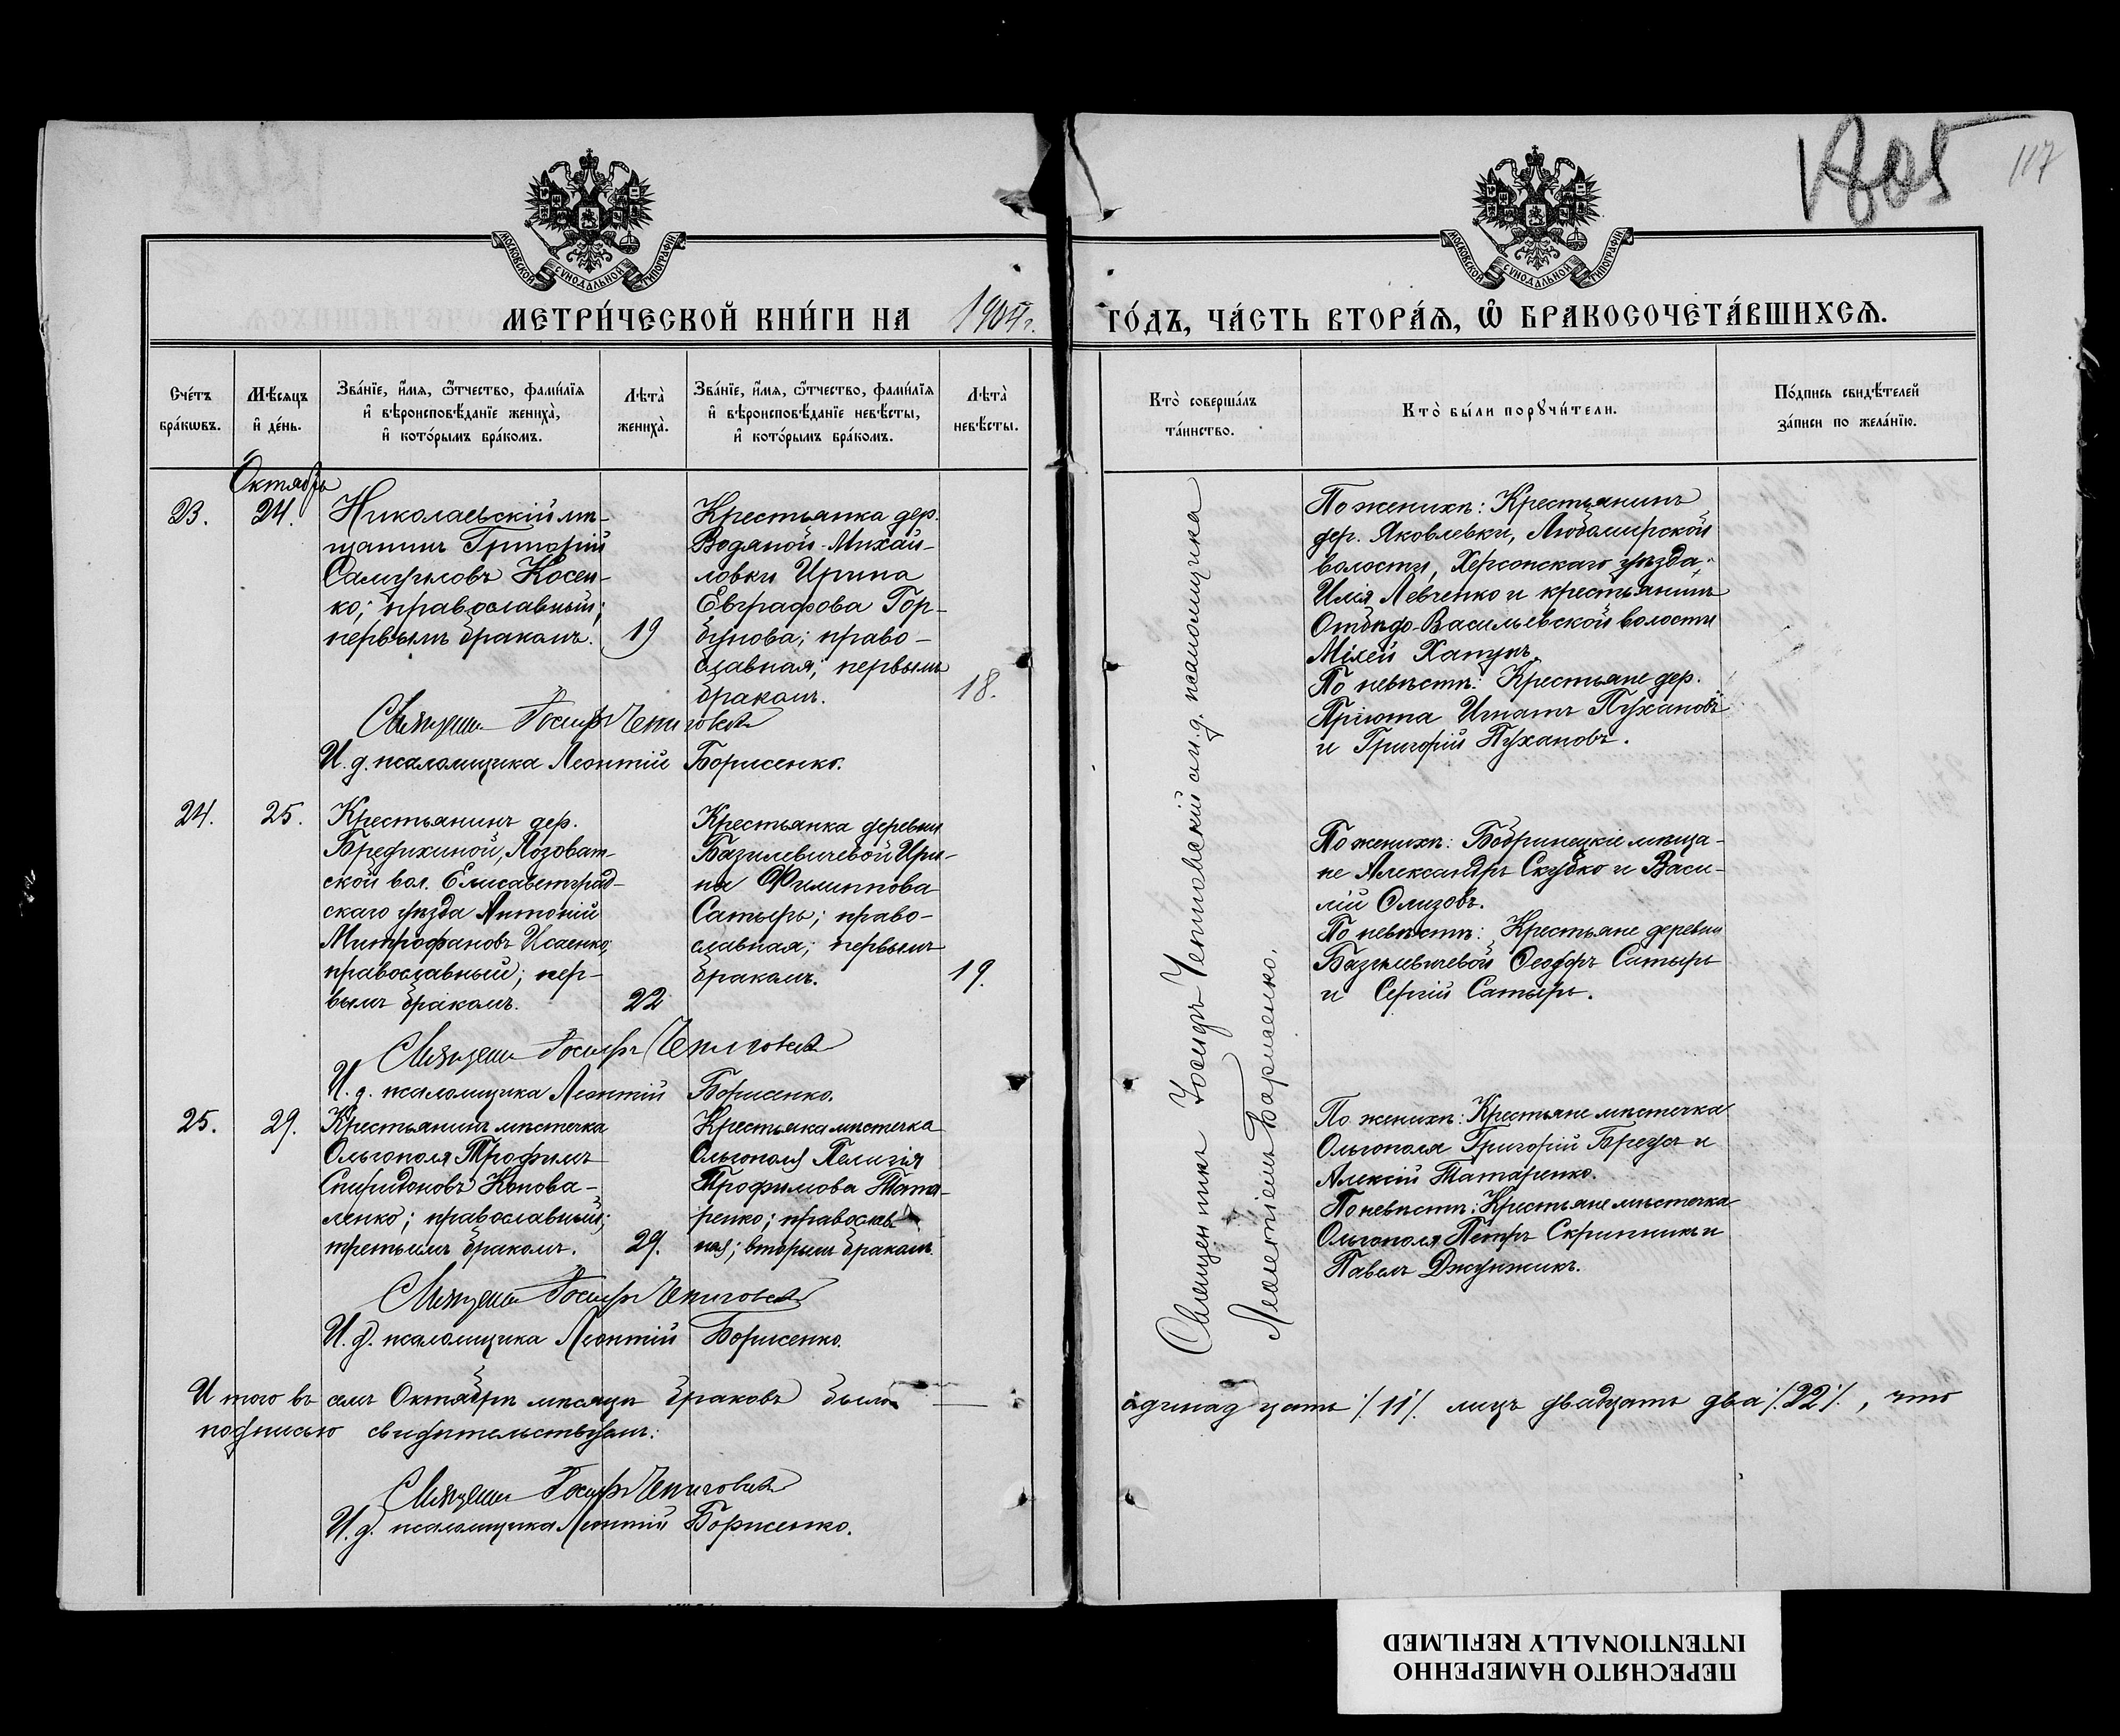 1805
117
МОСКОВСКОЙ СѴНОДАЛЬНОЙ ТИПОГРАФІИ
МОСКОВСКОЙ СѴНОДАЛЬНОЙ ТИПОГРАФІИ
МЕТРИ́ЧЕСКОЙ КНИ́ГИ НА 1904 г.
ГО́ДЪ, ЧА́СТЬ ВТОРА́Ѧ, Ѽ БРАКОСОЧЕТА́ВШИХСѦ.
Сче́тъ
бра́кѡвъ.
Мѣ́сѧцъ
и҆ де́нь.
Зва́нїе, и҆́мѧ, ѻ҆́тчество, фами́лїѧ
и҆ вѣроисповѣ́данїе жениха̀,
и҆ кото́рымъ бра́комъ.
Лѣта̀
жениха̀.
Зва́нїе, и҆́мѧ, ѻ҆́тчество, фами́лїѧ
и҆ вѣроисповѣ́данїе невѣ́сты,
и҆ кото́рымъ бра́комъ.
Лѣта̀
невѣ́сты.
Кто̀ соверша́лъ
та́инство.
Кто̀ бы́ли порꙋчи́тели.
По́дпись свидѣ́телей
за́писи по жела́нїю.
Октябрь
23.
24.
Николаевскій мѣ-
щанинъ Григорій
Самуиловъ Косен-
ко; православный;
первымъ бракомъ.
19
Крестьянка дер.
Водяной-Михай-
ловки Ирина
Евграфова Гор-
бунова; право-
славная; первымъ
бракомъ.
18.
По женихѣ: Крестьянинъ
дер. Яковлевки, Любомирской
волости, Херсонскаго уѣзда
Илія Левченко и крестьянинъ
Отбѣдо-Васильевской волости
Міхей Хапунъ.
По невѣстѣ: Крестьяне дер.
Пріюта Игнатъ Пухановъ
и Григорій Пухановъ.
Священ. Іосифъ Чепиговскій
И. д. псаломщика Леонтій Борисенко.
24.
25.
Крестьянинъ дер.
Бредихиной, Лозоват-
ской вол. Елисаветград-
скаго уѣзда Антоній
Митрофановъ Исаенко;
православный; пер-
вымъ бракомъ.
22
Крестьянка деревни
Базилевичевой Ири-
на Филиппова
Сатыръ; право-
славная; первымъ
бракомъ.
19.
По женихѣ: Бобринецкіе мѣща-
не Александръ Скубко и Васи-
лій Слизовъ.
По невѣстѣ: Крестьяне деревни
Базилевичевой Ѳеодоръ Сатыръ
и Сергій Сатыръ.
Священ. Іосифъ Чепиговскій
И. д. псаломщика Леонтій Борисенко.
25.
29.
Крестьянинъ мѣстечка
Ольгополя Трофимъ
Спиридоновъ Конова-
ленко; православный;
третьимъ бракомъ.
29.
Крестьянка мѣстечка
Ольгополя Пелагія
Трофимова Тата-
ренко; православ-
ная; вторымъ бракомъ.
По женихѣ: Крестьяне мѣстечка
Ольгополя Григорій Брегуз и
Алексій Татаренко.
По невѣстѣ: Крестьяне мѣстечка
Ольгополя Петръ Скрипникъ и
Павелъ Джунжикъ.
Священ. Іосифъ Чепиговскій
И. д. псаломщика Леонтій Борисенко.
Священникъ Іосифъ Чепиговскій съ и. д. псаломщика
Леонтіемъ Борисенко.
И того въ семъ Октябрѣ мѣсяцѣ браковъ было — одиннадцать /11/. лицъ двадцать два /22/, что
подписью свидѣтельствуемъ:
Священ. Іосифъ Чепиговскій
И. д. псаломщика Леонтій Борисенко.
ПЕРЕСНЯТО НАМЕРЕННО
INTENTIONALLY REFILMED